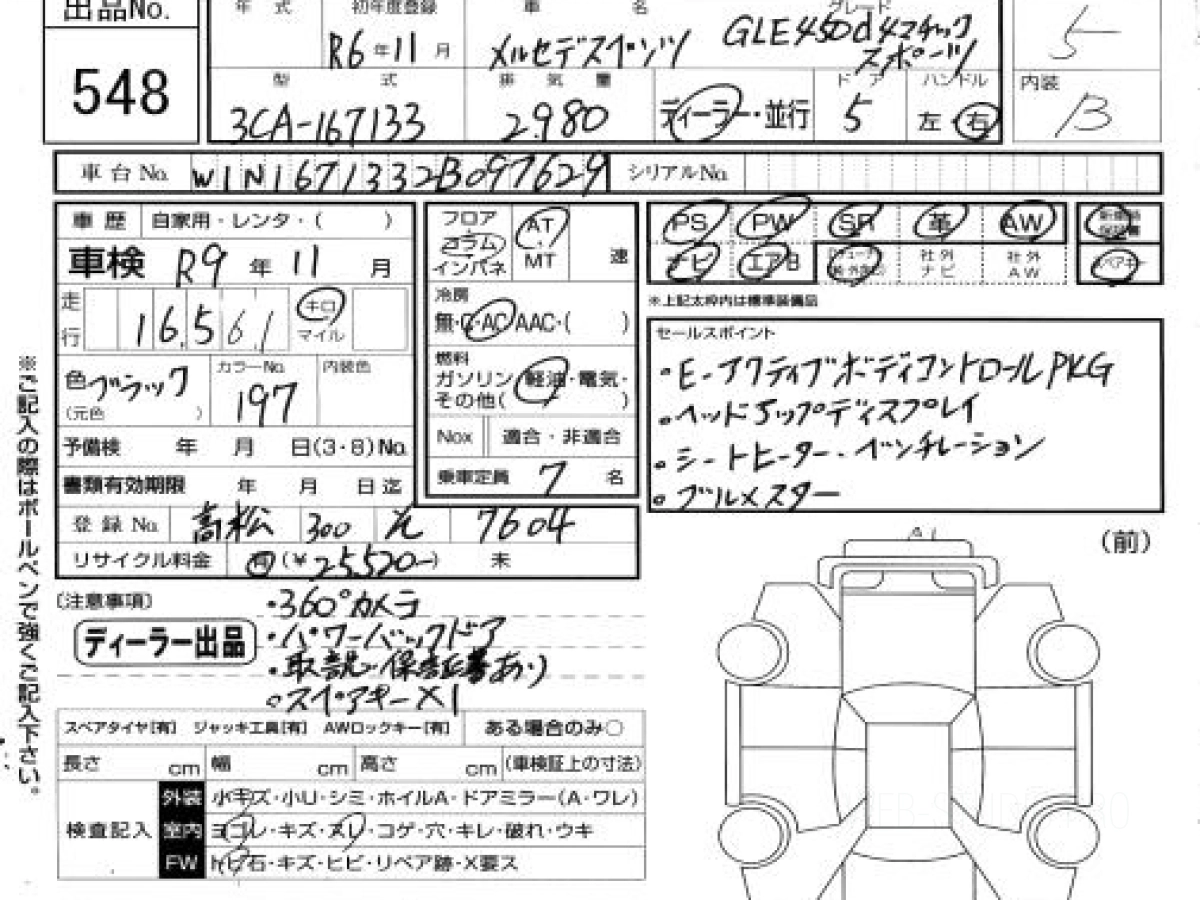 出品No. 年式 初年度登録 車名 グレード
548 R6年11月 メルセデスベンツ GLE450d 4マチック スポーツ 5
型式 排気量 ドア ハンドル 内装
3CA-167133 2980 ディーラー・並行 5 左・右 B
車台No. W1N1671332B097629 シリアルNo.
車歴 自家用・レンタ・( )
車検 R9年11月
走行 16,561 キロ マイル
色 ブラック (元色 ) カラーNo. 197 内装色
予備検 年 月 日(3・8)No.
書類有効期限 年 月 日迄
登録No. 高松 300 7604
リサイクル料金 有(¥25520-) 未
フロア・コラム・インパネ AT・MT 速
冷房
無・C・AC・AAC・( )
燃料
ガソリン・軽油・電気・
その他( )
Nox 適合・非適合
乗車定員 7 名
PS PW SR 革 AW 新車時保証書
ナビ エアB 社外ナビ 社外AW スペアキー
※上記太枠内は標準装備品
セールスポイント
・E-アクティブボディコントロールPKG
・ヘッドアップディスプレイ
・シートヒーター・ベンチレーション
・ブルメスター
(注意事項)
ディーラー出品
・360°カメラ
・パワーバックドア
・取説〜保証書あり
・スペアキー×1
スペアタイヤ[有] ジャッキ工具[有] AWロックキー[有] ある場合のみ○
長さ cm 幅 cm 高さ cm (車検証上の寸法)
検査記入
外装 小キズ・小U・シミ・ホイルA・ドアミラー(A・ワレ)
室内 ヨゴレ・キズ・スレ・コゲ・穴・キレ・破れ・ウキ
FW トビ石・キズ・ヒビ・リペア跡・X要ス
(前)
A1
※ご記入の際はボールペンで強くご記入下さい。